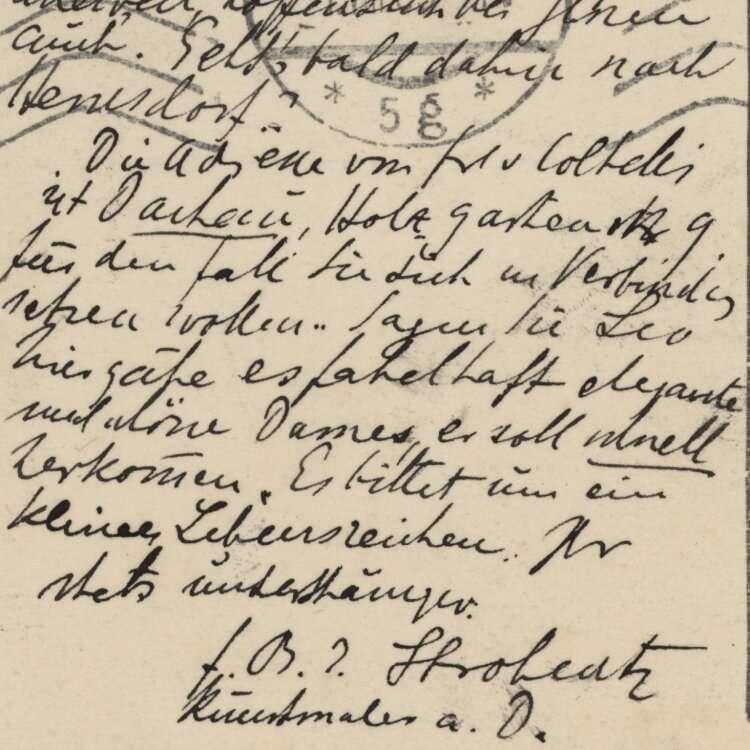 hoffentlich bei Ihnen
auch. Geht's bald dahin nach
Hennesdorf?
Die Adresse von Frl v
ist Dachau, Holzgartenstr 9
für den Fall Sie sich in Verbindg
setzen wollen.. Sagen Sie Leo
hier gäbe es fabelhaft elegante
und schöne Dames, er soll schnell
herkomen. Es bittet um ein
kleines Lebenszeichen. Ihr
stets unterthäniger.
f. B. J. Strobentz
Kunstmaler a. D.
* 5 8 *
8